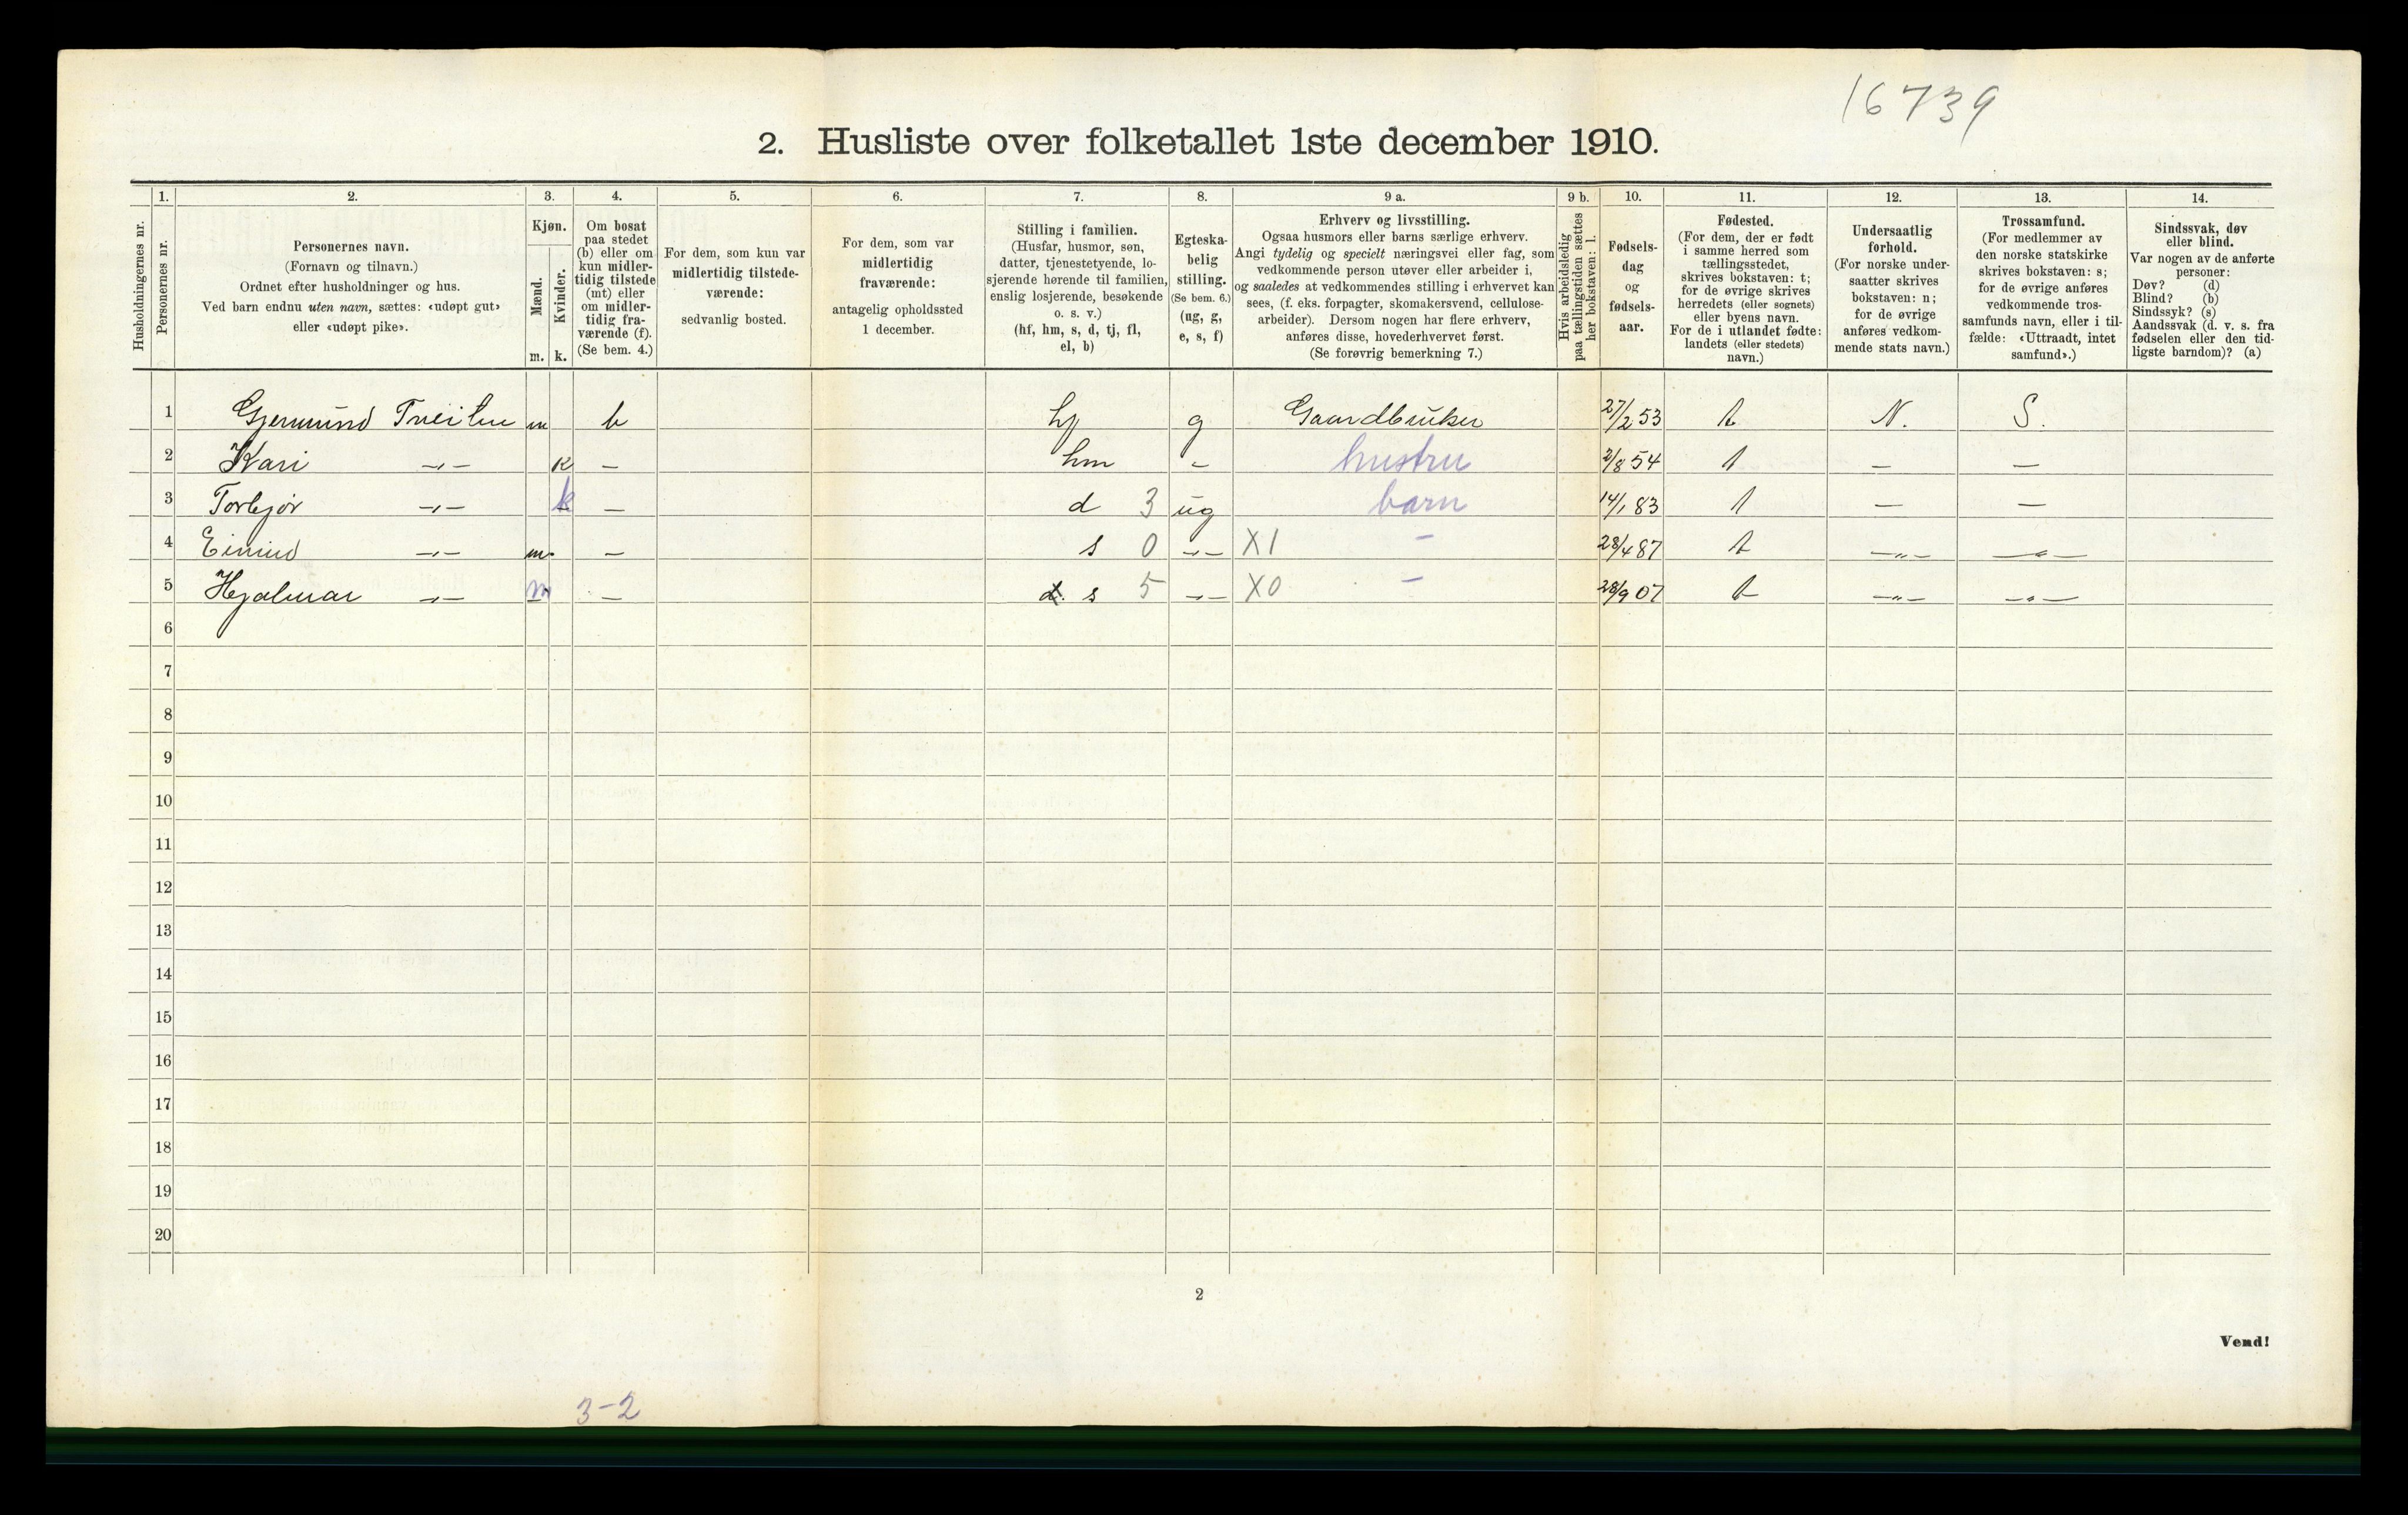 16739
2. Husliste over folketallet 1ste december 1910.
Husholdningernes nr.
1.
Personernes nr.
2.
Personernes navn.
(Fornavn og tilnavn.)
Ordnet efter husholdninger og hus.
Ved barn endnu uten navn, sættes: «udøpt gut»
eller «udøpt pike».
3.
Kjøn.
Mænd.
Kvinder.
m. k.
4.
Om bosat
paa stedet
(b) eller om
kun midler-
tidig tilstede
(mt) eller
om midler-
tidig fra-
værende (f).
(Se bem. 4.)
5.
For dem, som kun var
midlertidig tilstede-
værende:
sedvanlig bosted.
6.
For dem, som var
midlertidig
fraværende:
antagelig opholdssted
1 december.
7.
Stilling i familien.
(Husfar, husmor, søn,
datter, tjenestetyende, lo-
sjerende hørende til familien,
enslig losjerende, besøkende
o. s. v.)
(hf, hm, s, d, tj, fl,
el, b)
8.
Egteska-
belig
stilling.
(Se bem. 6.)
(ug, g,
e, s, f)
9 a.
Erhverv og livsstilling.
Ogsaa husmors eller barns særlige erhverv.
Angi tydelig og specielt næringsvei eller fag, som
vedkommende person utøver eller arbeider i,
og saaledes at vedkommendes stilling i erhvervet kan
sees, (f. eks. forpagter, skomakersvend, cellulose-
arbeider). Dersom nogen har flere erhverv,
anføres disse, hovederhvervet først.
(Se forøvrig bemerkning 7.)
9 b.
Hvis arbeidsledig
paa tællingstiden sættes
her bokstaven: l.
10.
Fødsels-
dag
og
fødsels-
aar.
11.
Fødested.
(For dem, der er født
i samme herred som
tællingsstedet,
skrives bokstaven: t;
for de øvrige skrives
herredets (eller sognets)
eller byens navn.
For de i utlandet fødte:
landets (eller stedets)
navn.)
12.
Undersaatlig
forhold.
(For norske under-
saatter skrives
bokstaven: n;
for de øvrige
anføres vedkom-
mende stats navn.)
13.
Trossamfund.
(For medlemmer av
den norske statskirke
skrives bokstaven: s;
for de øvrige anføres
vedkommende tros-
samfunds navn, eller i til-
fælde: «Uttraadt, intet
samfund».)
14.
Sindssvak, døv
eller blind.
Var nogen av de anførte
personer:
Døv? (d)
Blind? (b)
Sindssyk? (s)
Aandssvak (d. v. s. fra
fødselen eller den tid-
ligste barndom)? (a)
1 Gjermund Tveiten m b hf g Gaardbruker 27/2 53 t N. S.
2 Kari -„- k - hm - hustru 2/8 54 t - -
3 Torbjør -„- k - d 3 ug barn 14/1 83 t - -
4 Eivind -„- m. - s 0 -„- X1 - 28/4 87 t -„- -„-
5 Hjalmar -„- m - d. s 5 -„- X0 - 28/9 07 t -„- -„-
6
7
8
9
10
11
12
13
14
15
16
17
18
19
20
2
Vend!
3-2